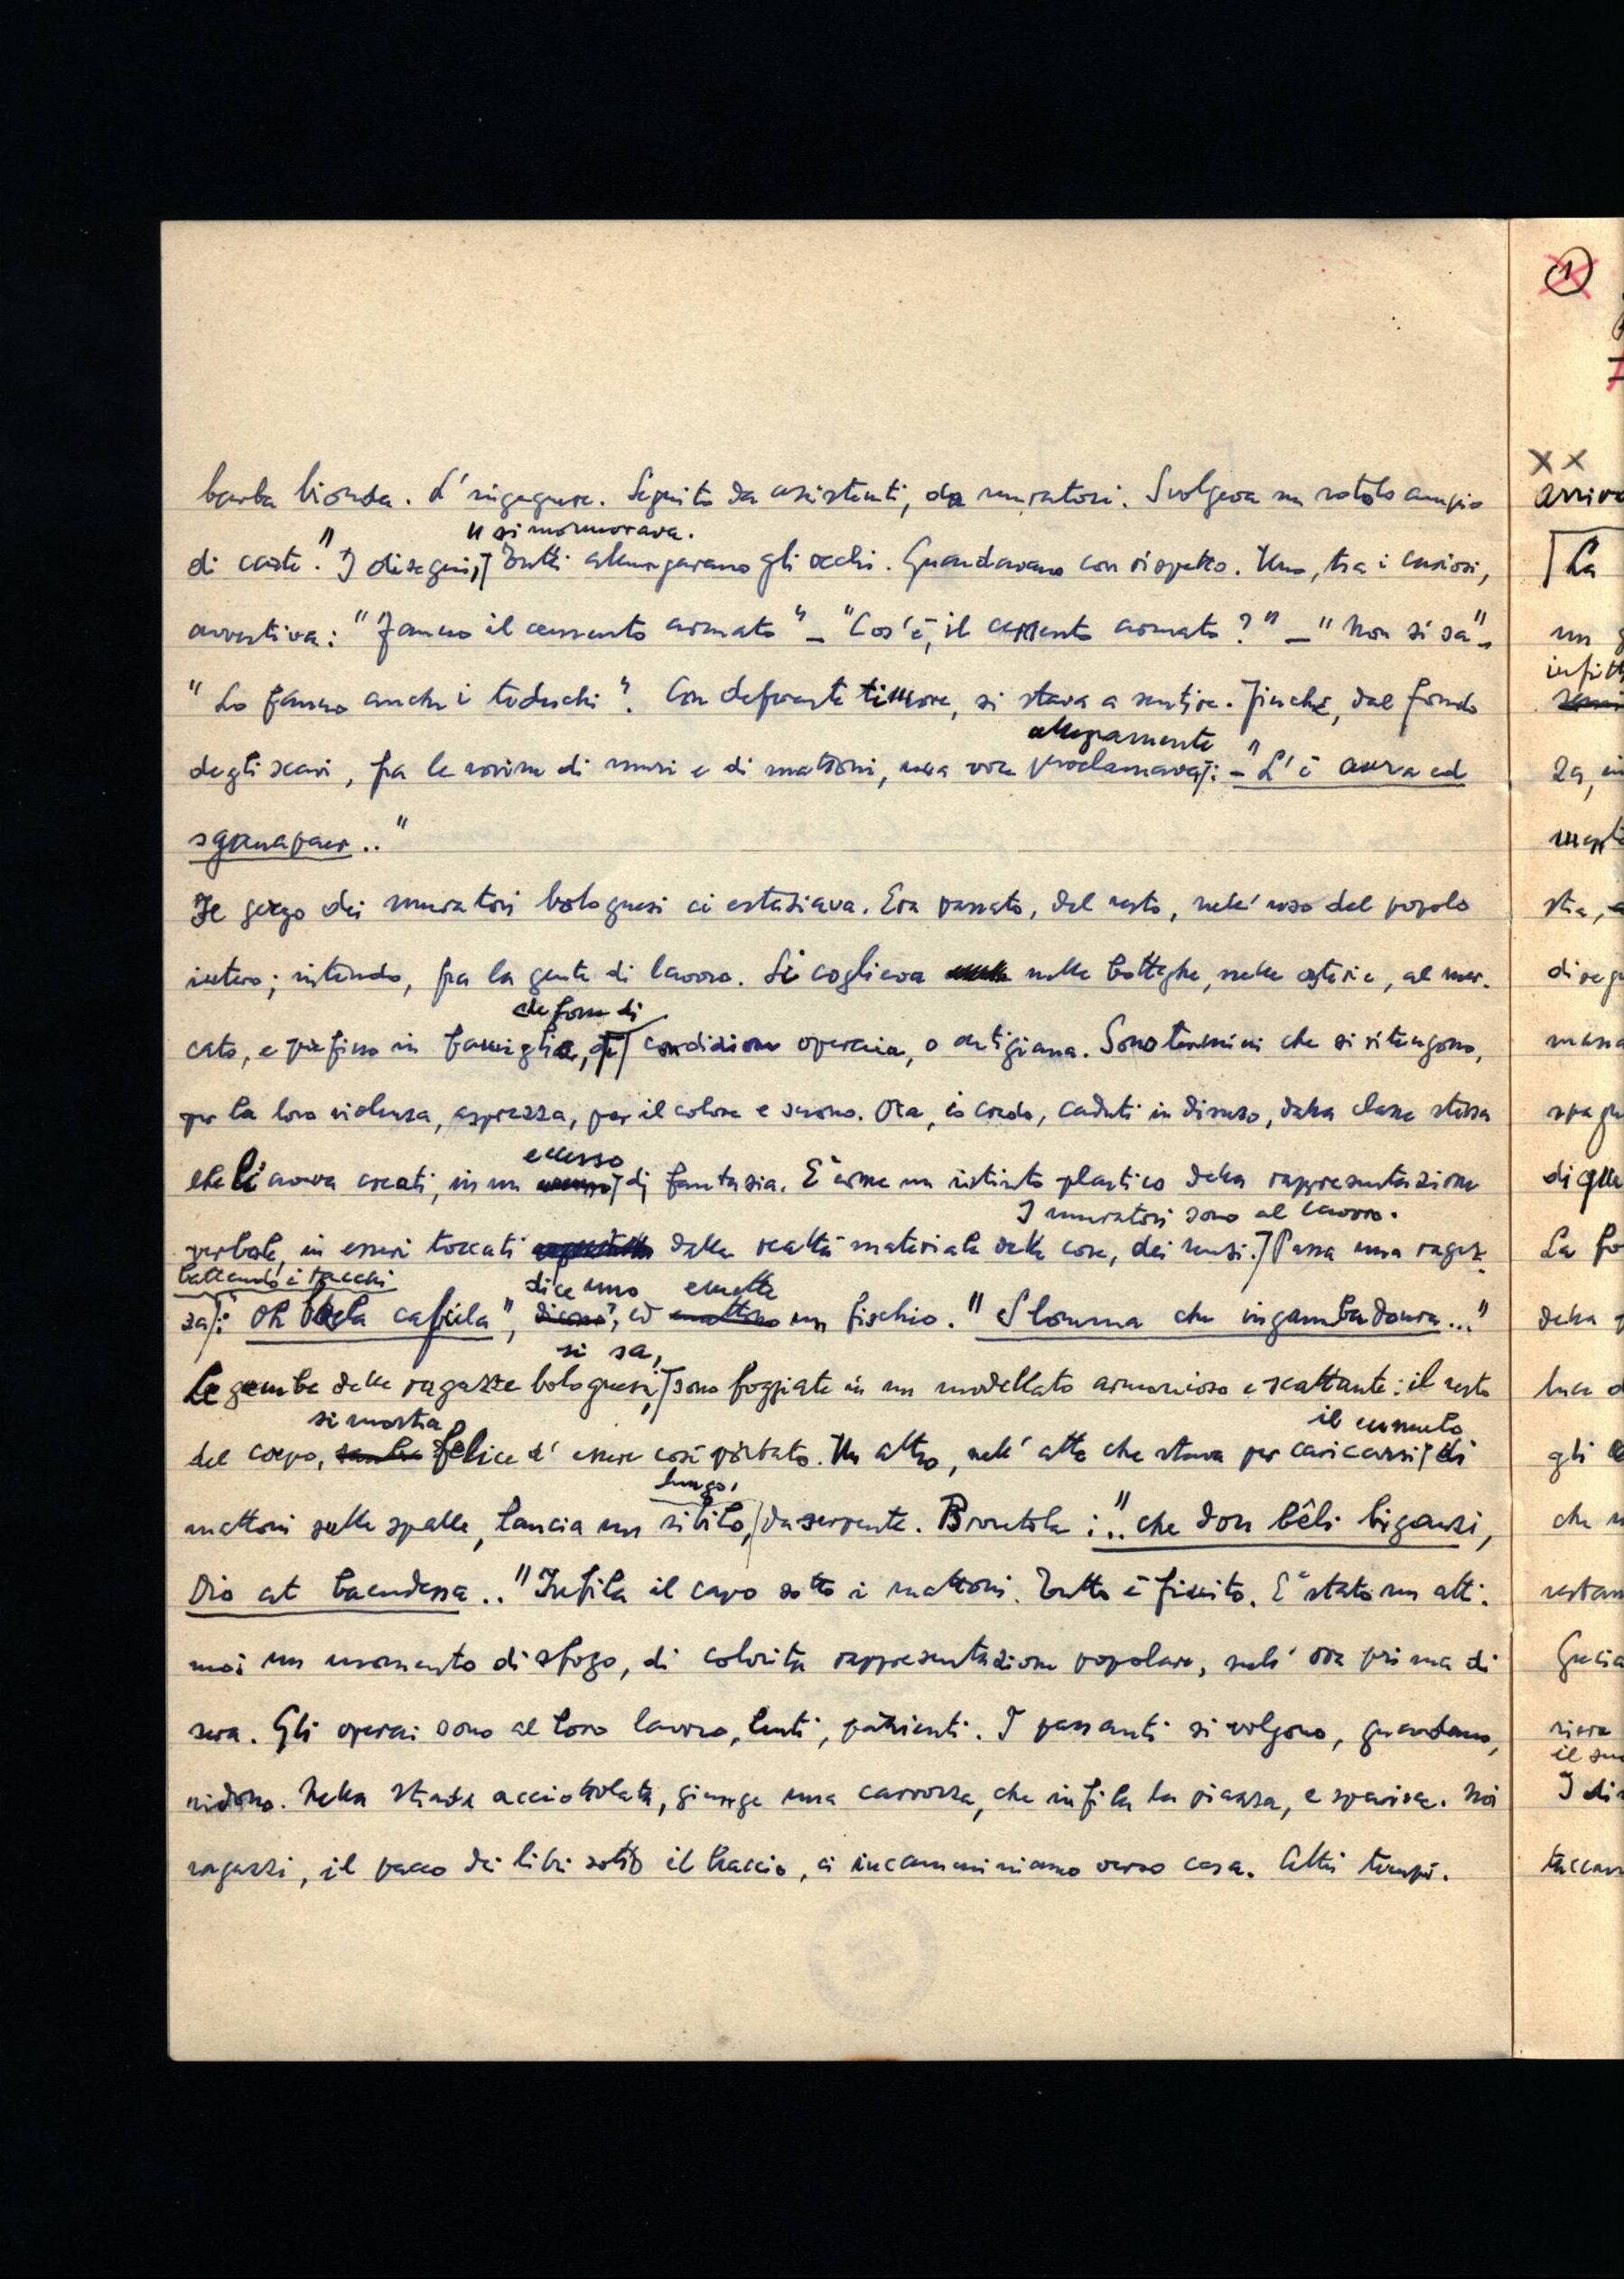 barba bionda. L'ingegnere. Seguito da assistenti, da muratori. Svolgeva un rotolo ampio
" si mormorava.
di carte." I disegni, Tutti allungavano gli occhi. Guardavano con rispetto. Uno, tra i curiosi,
avvertiva: "Fanno il cemento armato" – "Cos'è, il cemento armato?" – "Non si sa" –
"Lo fanno anche i tedeschi". Con deferente timore, si stava a sentire. Finché, dal fondo
allegramente
degli scavi, fra le rovine di muri e di mattoni, una voce proclamava: – "L'è aura ed
sganapaer.."
Il gergo dei muratori bolognesi ci estasiava. Era passato, del resto, nell'uso del popolo
intero; intendo, fra la gente di lavoro. Si coglieva nelle botteghe, nelle osterie, al mer-
che fosse di
cato, e perfino in famiglia, di condizione operaia, o artigiana. Sono termini che si ritengono,
per la loro violenza, asprezza, per il colore e suono. Ora, io credo, caduti in disuso, dalla classe stessa
eccesso
che li aveva creati, in un di fantasia. E' come un istinto plastico della rappresentazione
I muratori sono al lavoro.
verbale, in esseri toccati dalla realtà materiale delle cose, dei sensi. Passa una ragaz-
battendo i tacchi
dice uno emette
za: "Oh bela cafiila", ed un fischio. "Slomma che ingambadoura..."
si sa,
Le gambe delle ragazze bolognesi, sono foggiate in un modellato armonioso e scattante: il resto
si mostra il cumulo
del corpo, felice d'essere così portato. Un altro, nell'atto che stava per caricarsi di
lungo,
mattoni sulle spalle, lancia un sibilo, da serpente. Brontola: ".. che don bêli bigonzi,
Dio at banadessa.." Infila il capo sotto i mattoni. Tutto è finito. E' stato un atti-
mo: un momento di sfogo, di colorita rappresentazione popolare, nell'ora prima di
sera. Gli operai sono al loro lavoro, lenti, pazienti. I passanti si volgono, guardano,
ridono. Nella strada acciottolata, giunge una carrozza, che infila la piazza, e sparisce. Noi
ragazzi, il pacco dei libri sotto il braccio, ci incamminiamo verso casa. Altri tempi.
1
XX
La
un